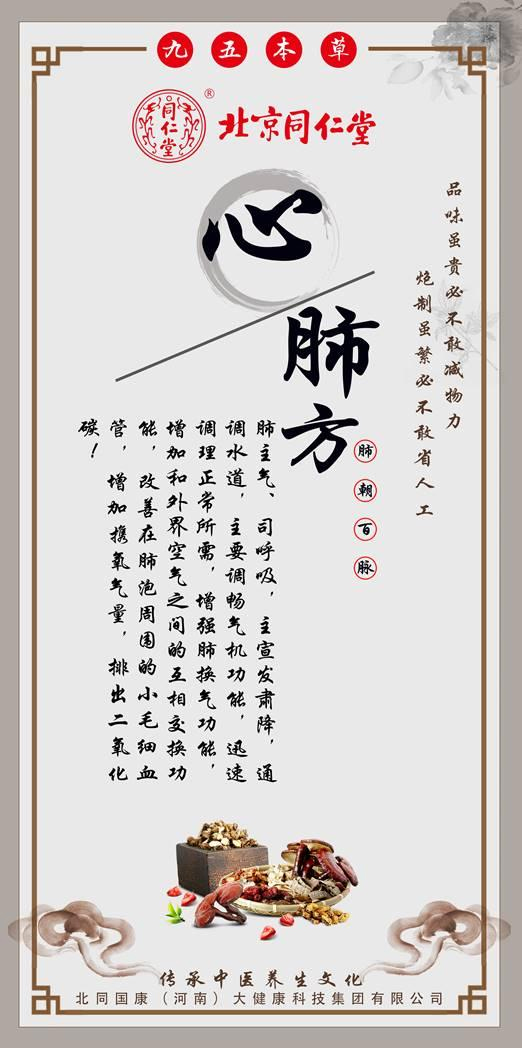 九五本草
同仁堂
®
北京同仁堂
品味虽贵必不敢减物力
炮制虽繁必不敢省人工
心
肺方
肺朝百脉
肺主气、司呼吸，主宣发肃降，通
调水道，主要调畅气机功能，迅速
调理正常所需，增强肺换气功能，
增加和外界空气之间的互相交换功
能，改善在肺泡周围的小毛细血
管，增加携氧气量，排出二氧化
碳！
传承中医养生文化
北同国康（河南）大健康科技集团有限公司